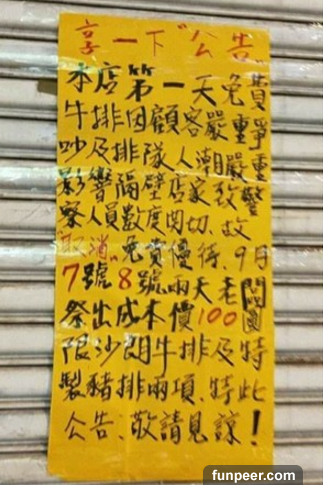 享一下"公告"
本店第一天免費
牛排因顧客嚴重爭
吵及排隊人潮嚴重
影響隔壁店家致警
察人員數度関切、故
"取消"免費優待、9月
7號8號兩天老闆
祭出成本價100圓
限沙朗牛排及特
製豬排兩項、特此
公告、敬請見諒！
funpeer.com